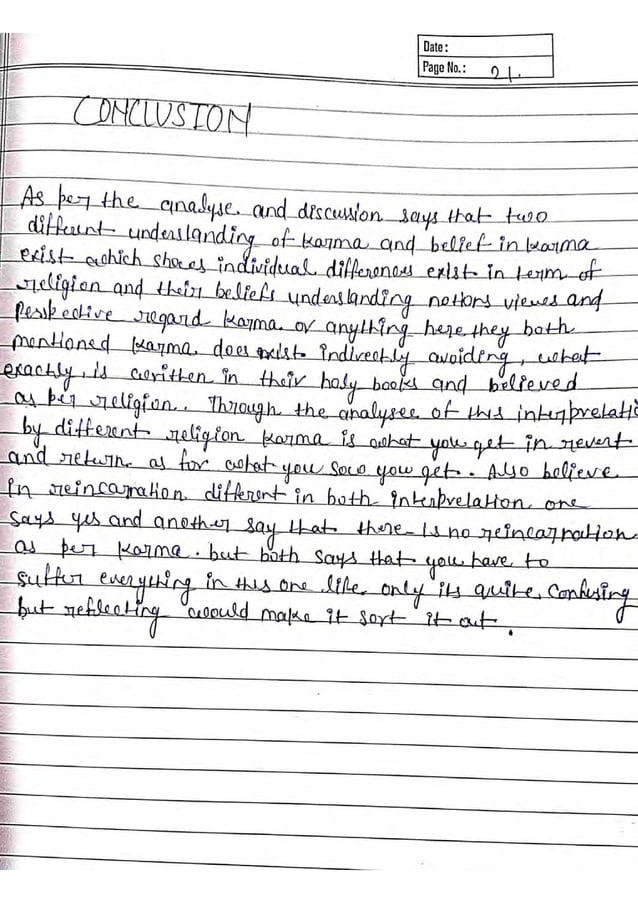 Date:
Page No.: 21.
CONCLUSION
As per the analyse. and discussion says that two
different understanding of karma and belief in karma
exist which shows individual differences exist in term of
religion and their beliefs understanding notions views and
Perspective regard karma. or anything here they both
mentioned karma. does exist indirectly avoiding, what
exactly, is written in their holy books and believed
as per religion. Through the analysee of this interpretati
by different religion karma is what you get in revert
and return. as for what you sow you get. Also believe
in reincarnation different in both interpretation one
says yes and another say that there is no reincarnation
as per karma. but both says that you have to
suffer everything in this one life. only its quite, confusing
but reflecting would make it sort it out.